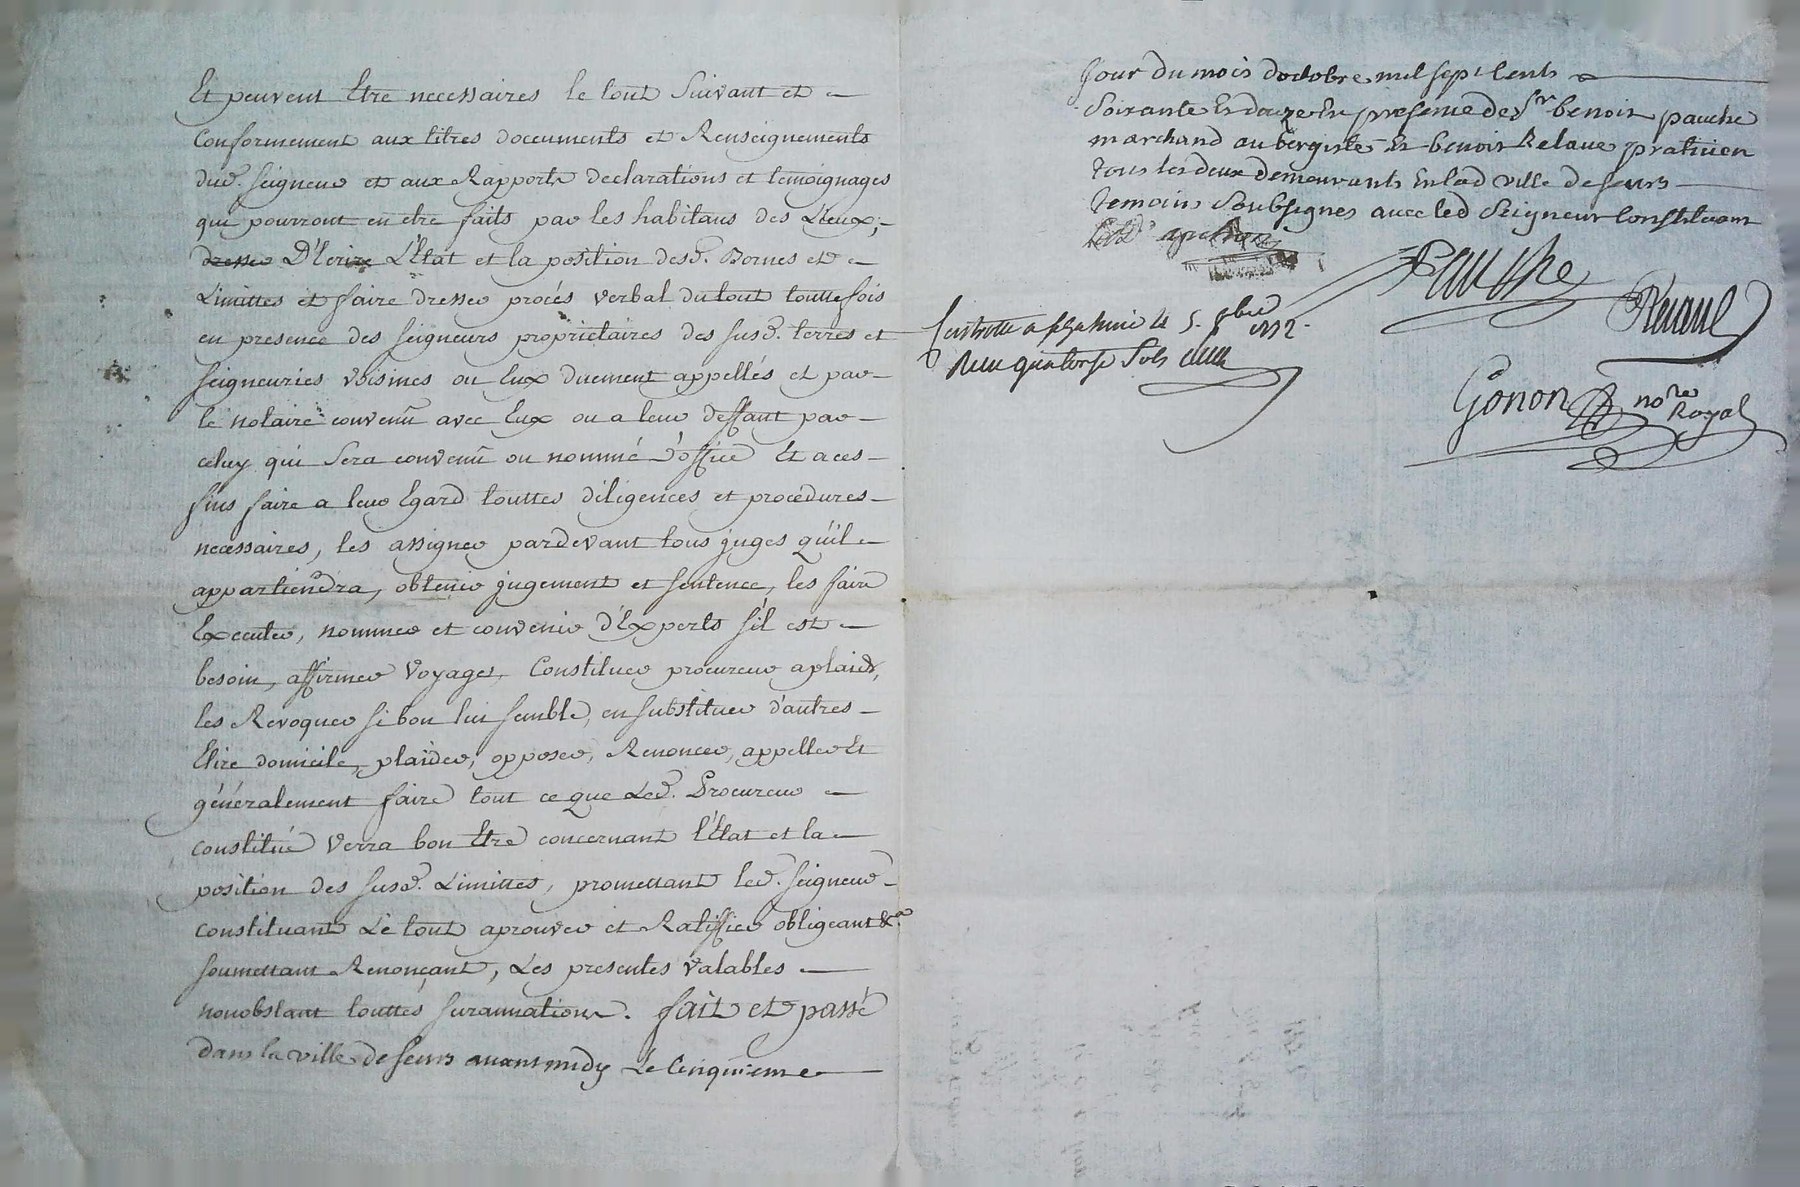 Et peuvent Etre necessaires le tout Suivant et
Conformement aux titres documents et Renseignements
dud. Seigneur et aux Rapports declarations et temoignages
qui pourront en etre faits par les habitans des Lieux,
dresser D'Ecrire L'Etat et la position desd. Bornes et
Limittes et faire dresser procés verbal du tout touttefois
en presence des seigneurs proprietaires des susd. terres et
seigneuries voisines ou Eux duement appellés et par
le notaire convenû avec Eux ou a leur deffaut par
celuy qui Sera convenû ou nommé d'office Et a ces
fins faire a leur Egard touttes diligences et procédures
necessaires, les assigner pardevant tous juges qu'il
appartiendra, obtenir jugement et sentence, les faire
Executer, nommer et convenir d'Experts s'il est
besoin, affirmer Voyages, Constituer procureur a plaids,
les Revoquer si bon lui semble, en substituer d'autres
Elire domicile, plaider, opposer, Renoncer, appeller Et
généralement faire tout ce que Led. Procureur
constitué verra bon Etre concernant l'Etat et la
position des susd. Limittes, promettant led. seigneur
constituant Le tout aprouver et Ratiffier obligeant &a.
soumettant Renonçant, Les presentes valables
nonobstant touttes surannations. fait et passé
dans la ville de feurs avant midy Le Cinquieme
Jour du mois doctobre mil sept cents
Soixante Et douze En presence de Sr benoit pauche
marchand aubergiste Et benoit Relave praticien
tous les deux demeurants En lad ville de feurs
temoins Soubsignes avec led Seigneur Constituant
Pauche
Relave
Controllé a le 5. 8bre 1772.
Reçu quatorze Sols
Gonon nore
Royal